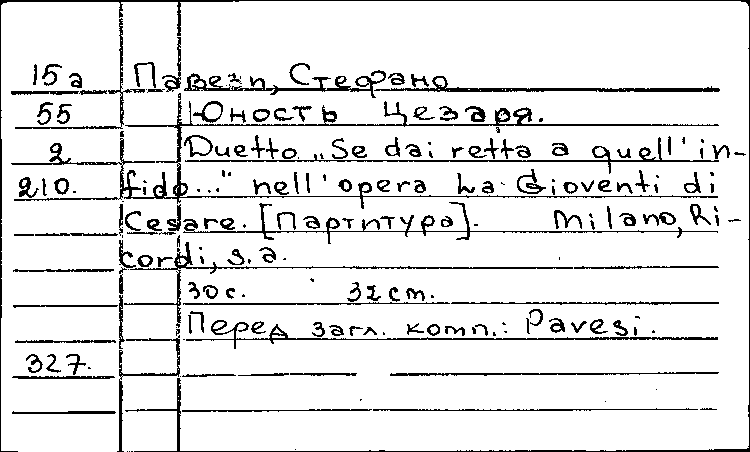 15а Павези, Стефано
55 Юность Цезаря.
2 Duetto „Se dai retta a quell' in-
210. fido..." nell'opera La Gioventi di
Cesare. [Партитура]. Milano, Ri-
cordi, s.a.
30с. 32cm.
Перед загл. комп.: Pavesi.
327.